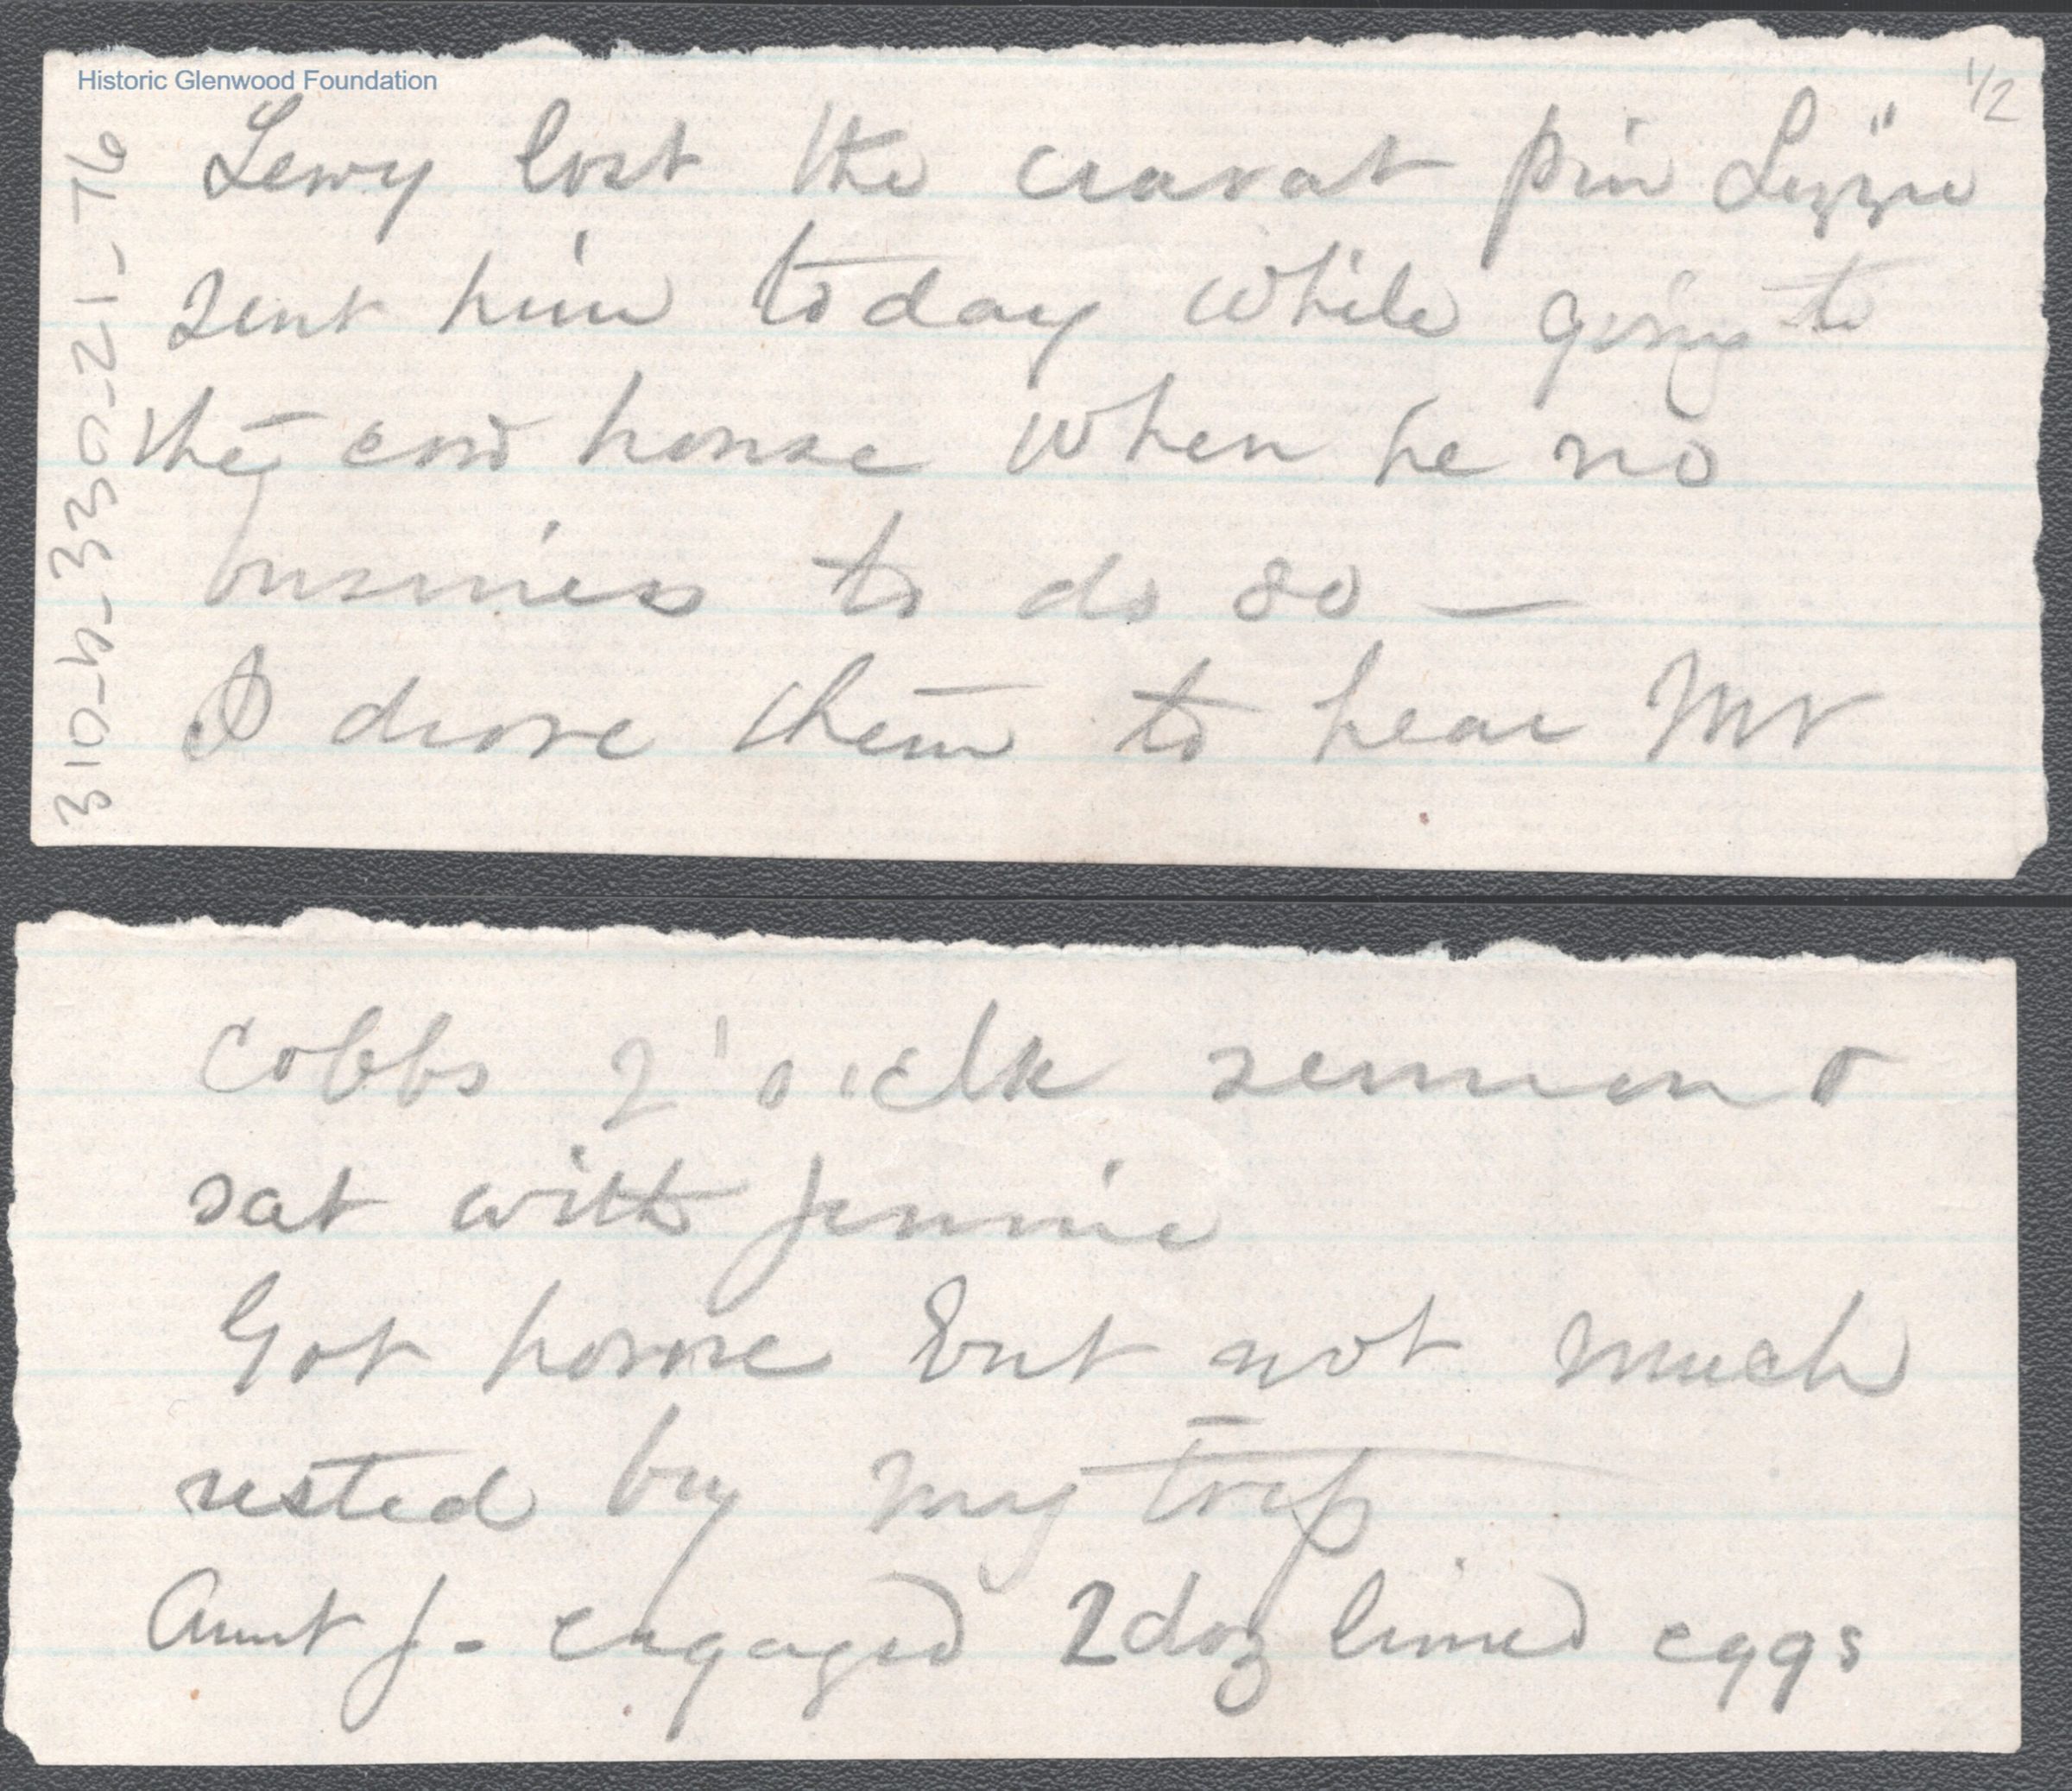 Historic Glenwood Foundation
1/2
310-b-330-21-76
Lewy lost the cravat pin Lizzie
sent him today while going to
they end house when he no
business to do so —
I drove them to hear Mr
Cobbs 2' o'clk sermon &
sat with Jennie
Got home but not much
rested by my trip
Aunt J- engaged 2 doz limed eggs